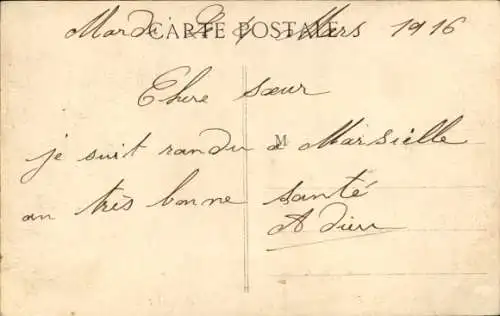 Mardi Mars 1916
CARTE POSTALE
Chere sœur
je suit randu a Marseille
M
an très bonne santé
Adieu